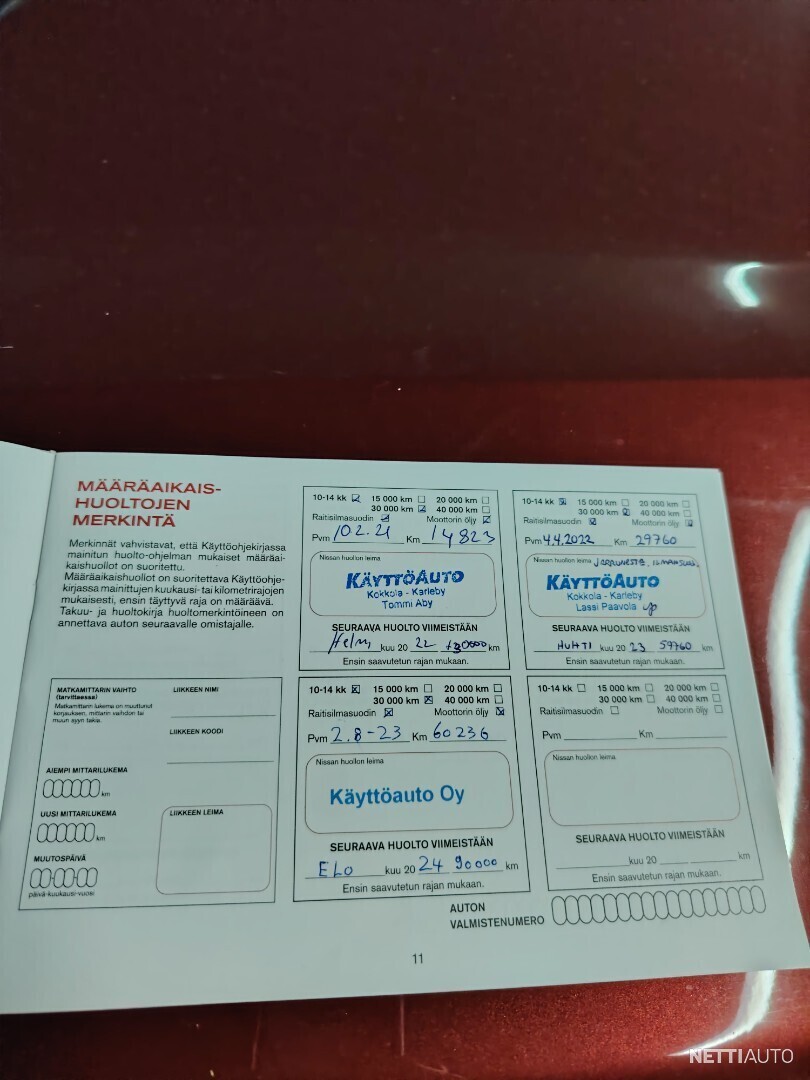 MÄÄRÄAIKAIS-
HUOLTOJEN
MERKINTÄ
Merkinnät vahvistavat, että Käyttöohjekirjassa
mainitun huolto-ohjelman mukaiset määräai-
kaishuollot on suoritettu.
Määräaikaishuollot on suoritettava Käyttöohje-
kirjassa mainittujen kuukausi- tai kilometrirajojen
mukaisesti, ensin täyttyvä raja on määräävä.
Takuu- ja huoltokirja huoltomerkintöineen on
annettava auton seuraavalle omistajalle.
10-14 kk 15 000 km 20 000 km
30 000 km 40 000 km
Raitisilmasuodin Moottorin öljy
Pvm 10.2.21 Km 14823
Nissan huollon leima
KÄYTTÖAUTO
Kokkola - Karleby
Tommi Aby
SEURAAVA HUOLTO VIIMEISTÄÄN
Helmi kuu 20 22 +30000 km
Ensin saavutetun rajan mukaan.
10-14 kk 15 000 km 20 000 km
30 000 km 40 000 km
Raitisilmasuodin Moottorin öljy
Pvm 4.4.2022 Km 29760
Nissan huollon leima JARRUNESTE,
KÄYTTÖAUTO
Kokkola - Karleby
Lassi Paavola
SEURAAVA HUOLTO VIIMEISTÄÄN
HUHTI kuu 20 23 59760 km
Ensin saavutetun rajan mukaan.
MATKAMITTARIN VAIHTO
(tarvittaessa)
Matkamittarin lukema on muuttunut
korjauksen, mittarin vaihdon tai
muun syyn takia.
LIIKKEEN NIMI
LIIKKEEN KOODI
AIEMPI MITTARILUKEMA
km
UUSI MITTARILUKEMA
km
MUUTOSPÄIVÄ
päivä-kuukausi-vuosi
LIIKKEEN LEIMA
10-14 kk 15 000 km 20 000 km
30 000 km 40 000 km
Raitisilmasuodin Moottorin öljy
Pvm 2.8-23 Km 60236
Nissan huollon leima
Käyttöauto Oy
SEURAAVA HUOLTO VIIMEISTÄÄN
ELO kuu 20 24 90000 km
Ensin saavutetun rajan mukaan.
10-14 kk 15 000 km 20 000 km
30 000 km 40 000 km
Raitisilmasuodin Moottorin öljy
Pvm Km
Nissan huollon leima
SEURAAVA HUOLTO VIIMEISTÄÄN
kuu 20 km
Ensin saavutetun rajan mukaan.
AUTON
VALMISTENUMERO
11
NETTIAUTO